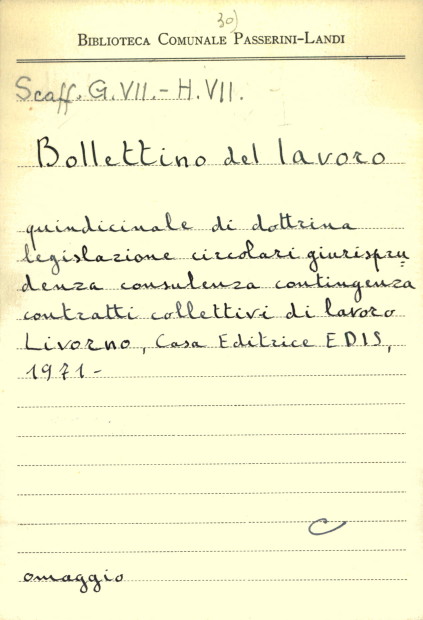 30)
BIBLIOTECA COMUNALE PASSERINI-LANDI
Scaff. G. VII. - H. VII.
Bollettino del lavoro
quindicinale di dottrina
legislazione circolari giurispru=
denza consulenza contingenza
contratti collettivi di lavoro
Livorno, Casa Editrice EDIS,
1971-
C
omaggio